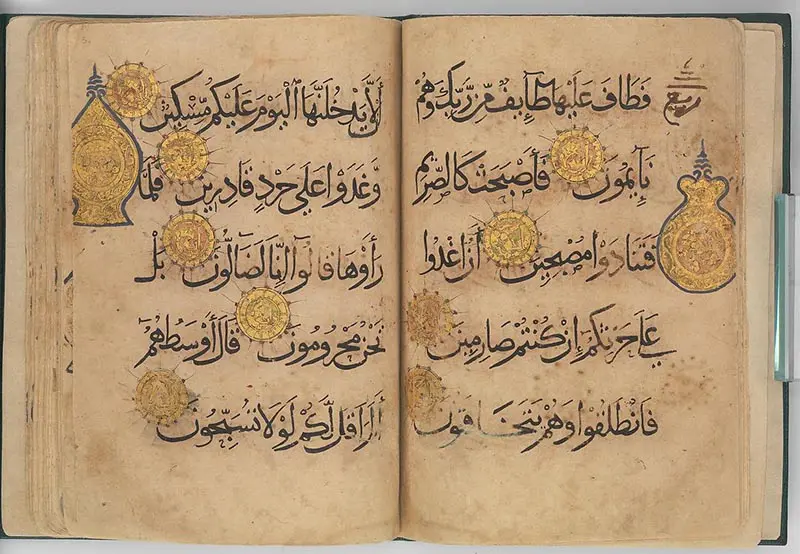 ربع
فَطَافَ عَلَيْهَا طَآيِفٌ مِّن رَّبِّكَ وَهُمْ
نَآيِمُونَ فَأَصْبَحَتْ كَالصَّرِيمِ
فَتَنَادَوْا مُصْبِحِينَ أَنِ اغْدُوا
عَلَى حَرْثِكُمْ إِن كُنْتُمْ صَارِمِينَ
فَانْطَلَقُوا وَهُمْ يَتَخَافَتُونَ
أَلَّا يَدْخُلَنَّهَا الْيَوْمَ عَلَيْكُم مِّسْكِينٌ
وَّغَدَوْا عَلَى حَرْدٍ قَادِرِينَ فَلَمَّا
رَأَوْهَا قَالُوا إِنَّا لَضَالُّونَ بَلْ
نَحْنُ مَحْرُومُونَ قَالَ أَوْسَطُهُمْ
أَلَمْ أَقُل لَّكُمْ لَوْلَا تُسَبِّحُونَ